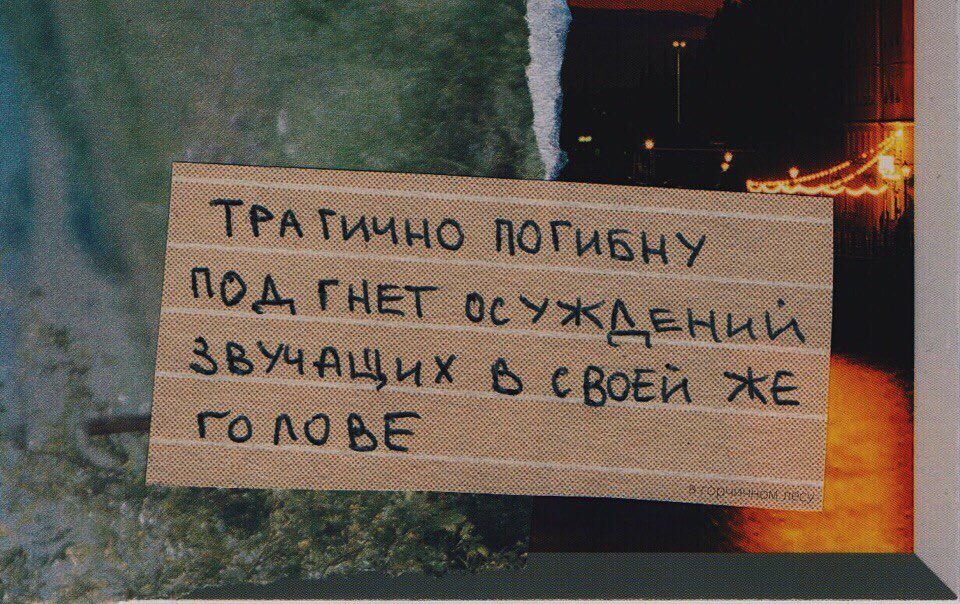 ТРАГИЧНО ПОГИБНУ
ПОД ГНЕТ ОСУЖДЕНИЙ
ЗВУЧАЩИХ В СВОЕЙ ЖЕ
ГОЛОВЕ
в горчичном лесу